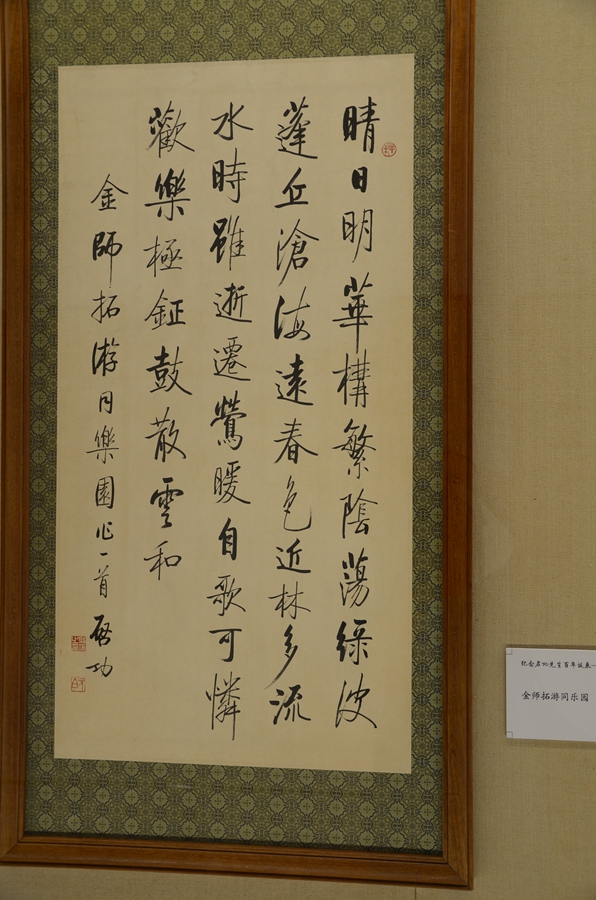 晴日明華構繁陰蕩綠波
蓬丘滄海遠春色近林多流
水時雖逝遷鶯暖自歌可憐
歡樂極鉦鼓散雲和
金師拓游同樂園作一首 啟功
纪念启功先生百年诞辰
金师拓游同乐园